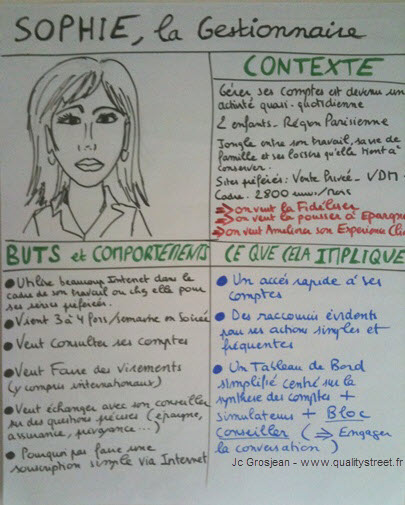 SOPHIE, la Gestionnaire
CONTEXTE
Gérer ses comptes est devenu une
activité quasi-quotidienne
2 enfants - Région Parisienne
Jongle entre son travail, sa vie de
famille et ses loisirs qu'elle tient à
conserver.
Sites préférés: Vente Privée - VDM -
Cadre. 2800 /mois
=> on veut la Fidéliser
=> on veut la pousser à Epargner
=> on veut Améliorer son Expérience Cli
BUTS et COMPORTEMENTS
• Utilise beaucoup Internet dans le
cadre de son travail ou chez elle pour
ses sites préférés.
• Vient 3 à 4 fois/semaine en Soirée
• Veut consulter ses comptes
• Veut Faire des virements
(y compris internationaux)
• Veut échanger avec son conseiller
sur des questions précises (épargne,
assurance, prévoyance...)
• Pourquoi pas faire une
souscription simple via Internet
CE QUE CELA IMPLIQUE
• Un accès rapide à ses
comptes
• Des raccourcis évidents
pour ses actions simples et
fréquentes
• Un Tableau de Bord
simplifié centré sur la
synthèse des comptes +
simulateurs + Bloc
Conseiller (=> Engager
la conversation)
Jc Grosjean - www.qualitystreet.fr